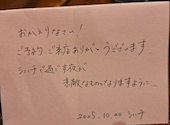 おかえりなさい！
ご予約、ご来店ありがとうございます
シハチで過ごす夜が
素敵なものになりますように…
2025.10.20 シハチ